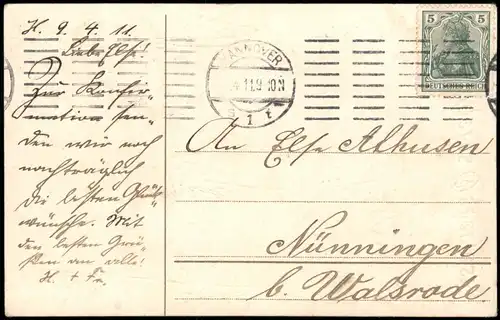 H. 9. 4. 11.
Liebe Else!
Zur Konfir-
mation sen-
den wir noch
nachträglich
die besten Glück-
wünsche. Mit
den besten Grü-
ßen an alle!
H. + Fr.
HANNOVER
4.11.9-10N
1 t
5 5
DEUTSCHES REICH
An Else Alhusen
Nünningen
b. Walsrode.